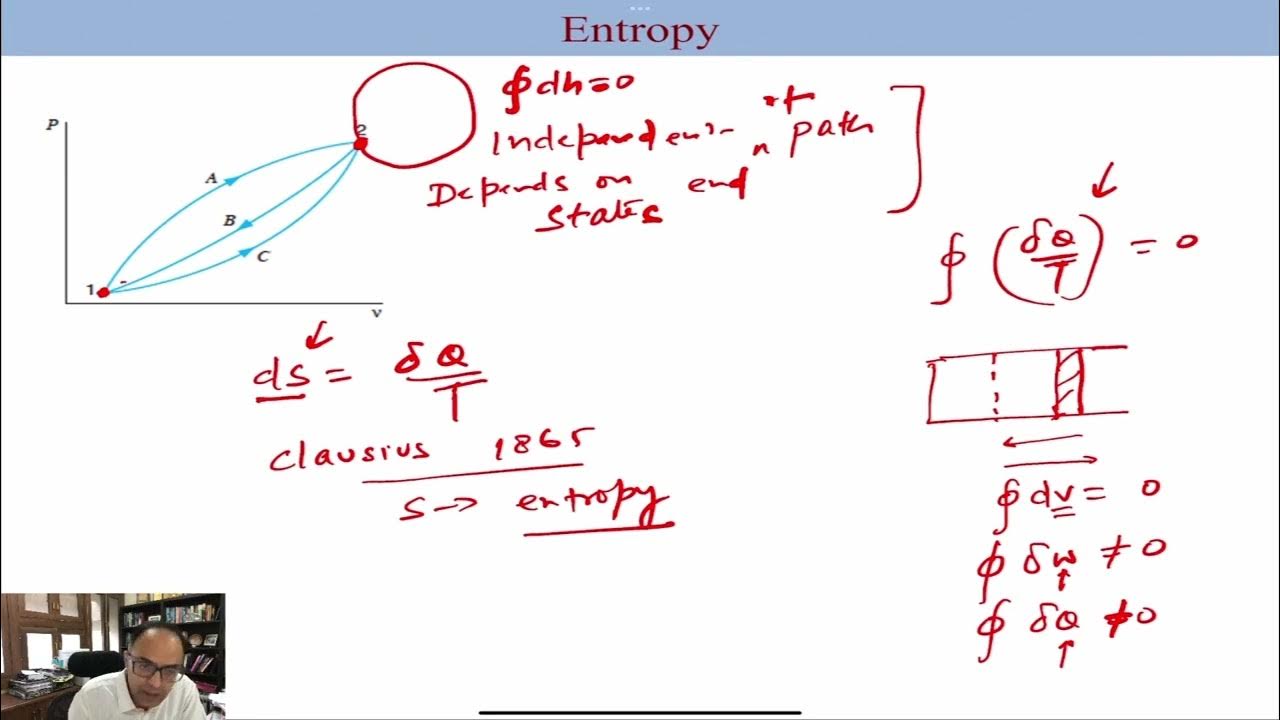 Entropy
P
2
A
B
C
1
v
∮dh=0
Independent of path
Depends on end
states
∮(δQ/T) = 0
ds = δQ/T
Clausius 1865
s → entropy
∮dv = 0
∮δw ≠ 0
∮δQ ≠ 0